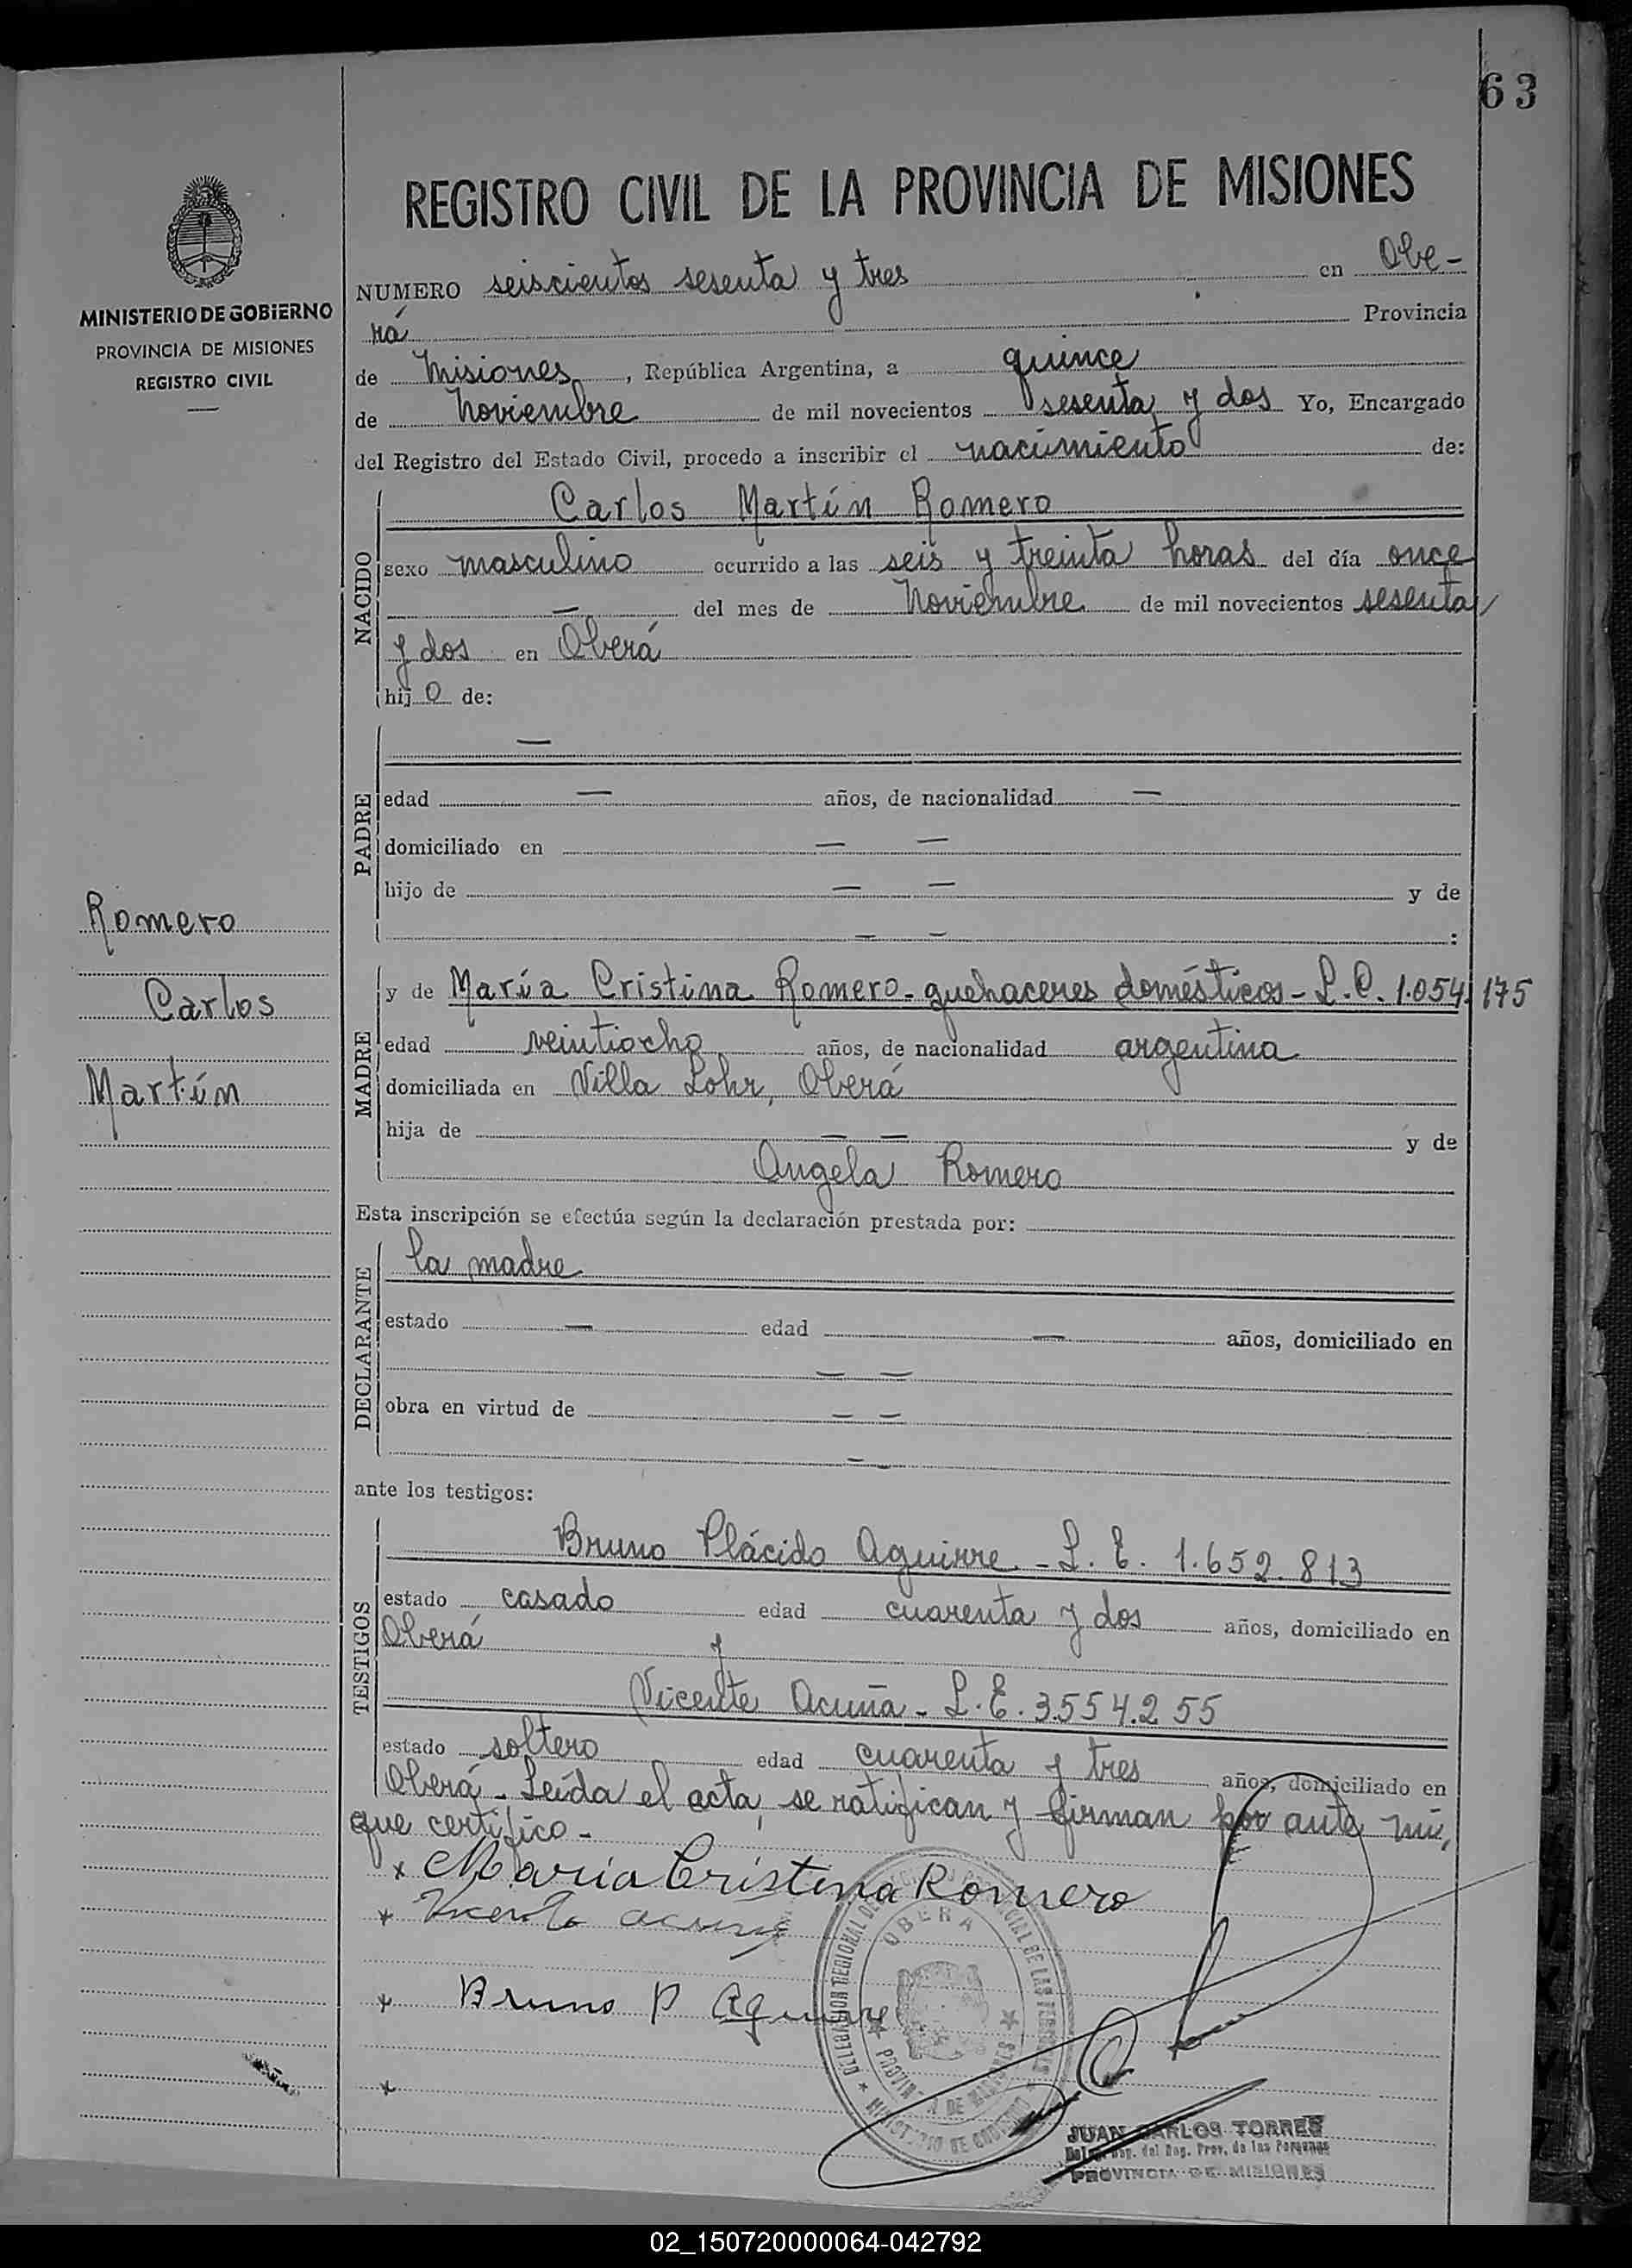 63
REGISTRO CIVIL DE LA PROVINCIA DE MISIONES
MINISTERIO DE GOBIERNO
PROVINCIA DE MISIONES
REGISTRO CIVIL
NUMERO seiscientos sesenta y tres en Obe-
rá Provincia
de Misiones, República Argentina, a quince
de Noviembre de mil novecientos sesenta y dos Yo, Encargado
del Registro del Estado Civil, procedo a inscribir el nacimiento de:
NACIDO
Carlos Martín Romero
sexo masculino ocurrido a las seis y treinta horas del día once
— del mes de Noviembre de mil novecientos sesenta
y dos en Oberá
hijo de:
PADRE
—
edad — años, de nacionalidad —
domiciliado en — —
hijo de — — y de
— — :
Romero
Carlos
Martín
MADRE
y de María Cristina Romero - quehaceres domésticos - L. C. 1.054.175
edad veintiocho años, de nacionalidad argentina
domiciliada en Villa Lohr, Oberá
hija de — — y de
Angela Romero
Esta inscripción se efectúa según la declaración prestada por:
DECLARANTE
la madre
estado — edad — años, domiciliado en
— —
obra en virtud de — —
— -
ante los testigos:
TESTIGOS
Bruno Plácido Aguirre - L. E. 1.652.813
estado casado edad cuarenta y dos años, domiciliado en
Oberá y
Vicente Acuña - L. E. 3.554.255
estado soltero edad cuarenta y tres años, domiciliado en
Oberá - Leída el acta, se ratifican y firman por ante mí,
que certifico -
x Maria Cristina Romero
x Vicente acuña
x Bruno P Aguirre
x
OBERA
DELEGACION REGIONAL DEL
DE LAS PERSONAS
PROVINCIA DE MISIONES
MINISTERIO DE GOBIERNO
JUAN CARLOS TORRES
del Reg. Prov. de las Personas
PROVINCIA DE MISIONES
02_150720000064-042792